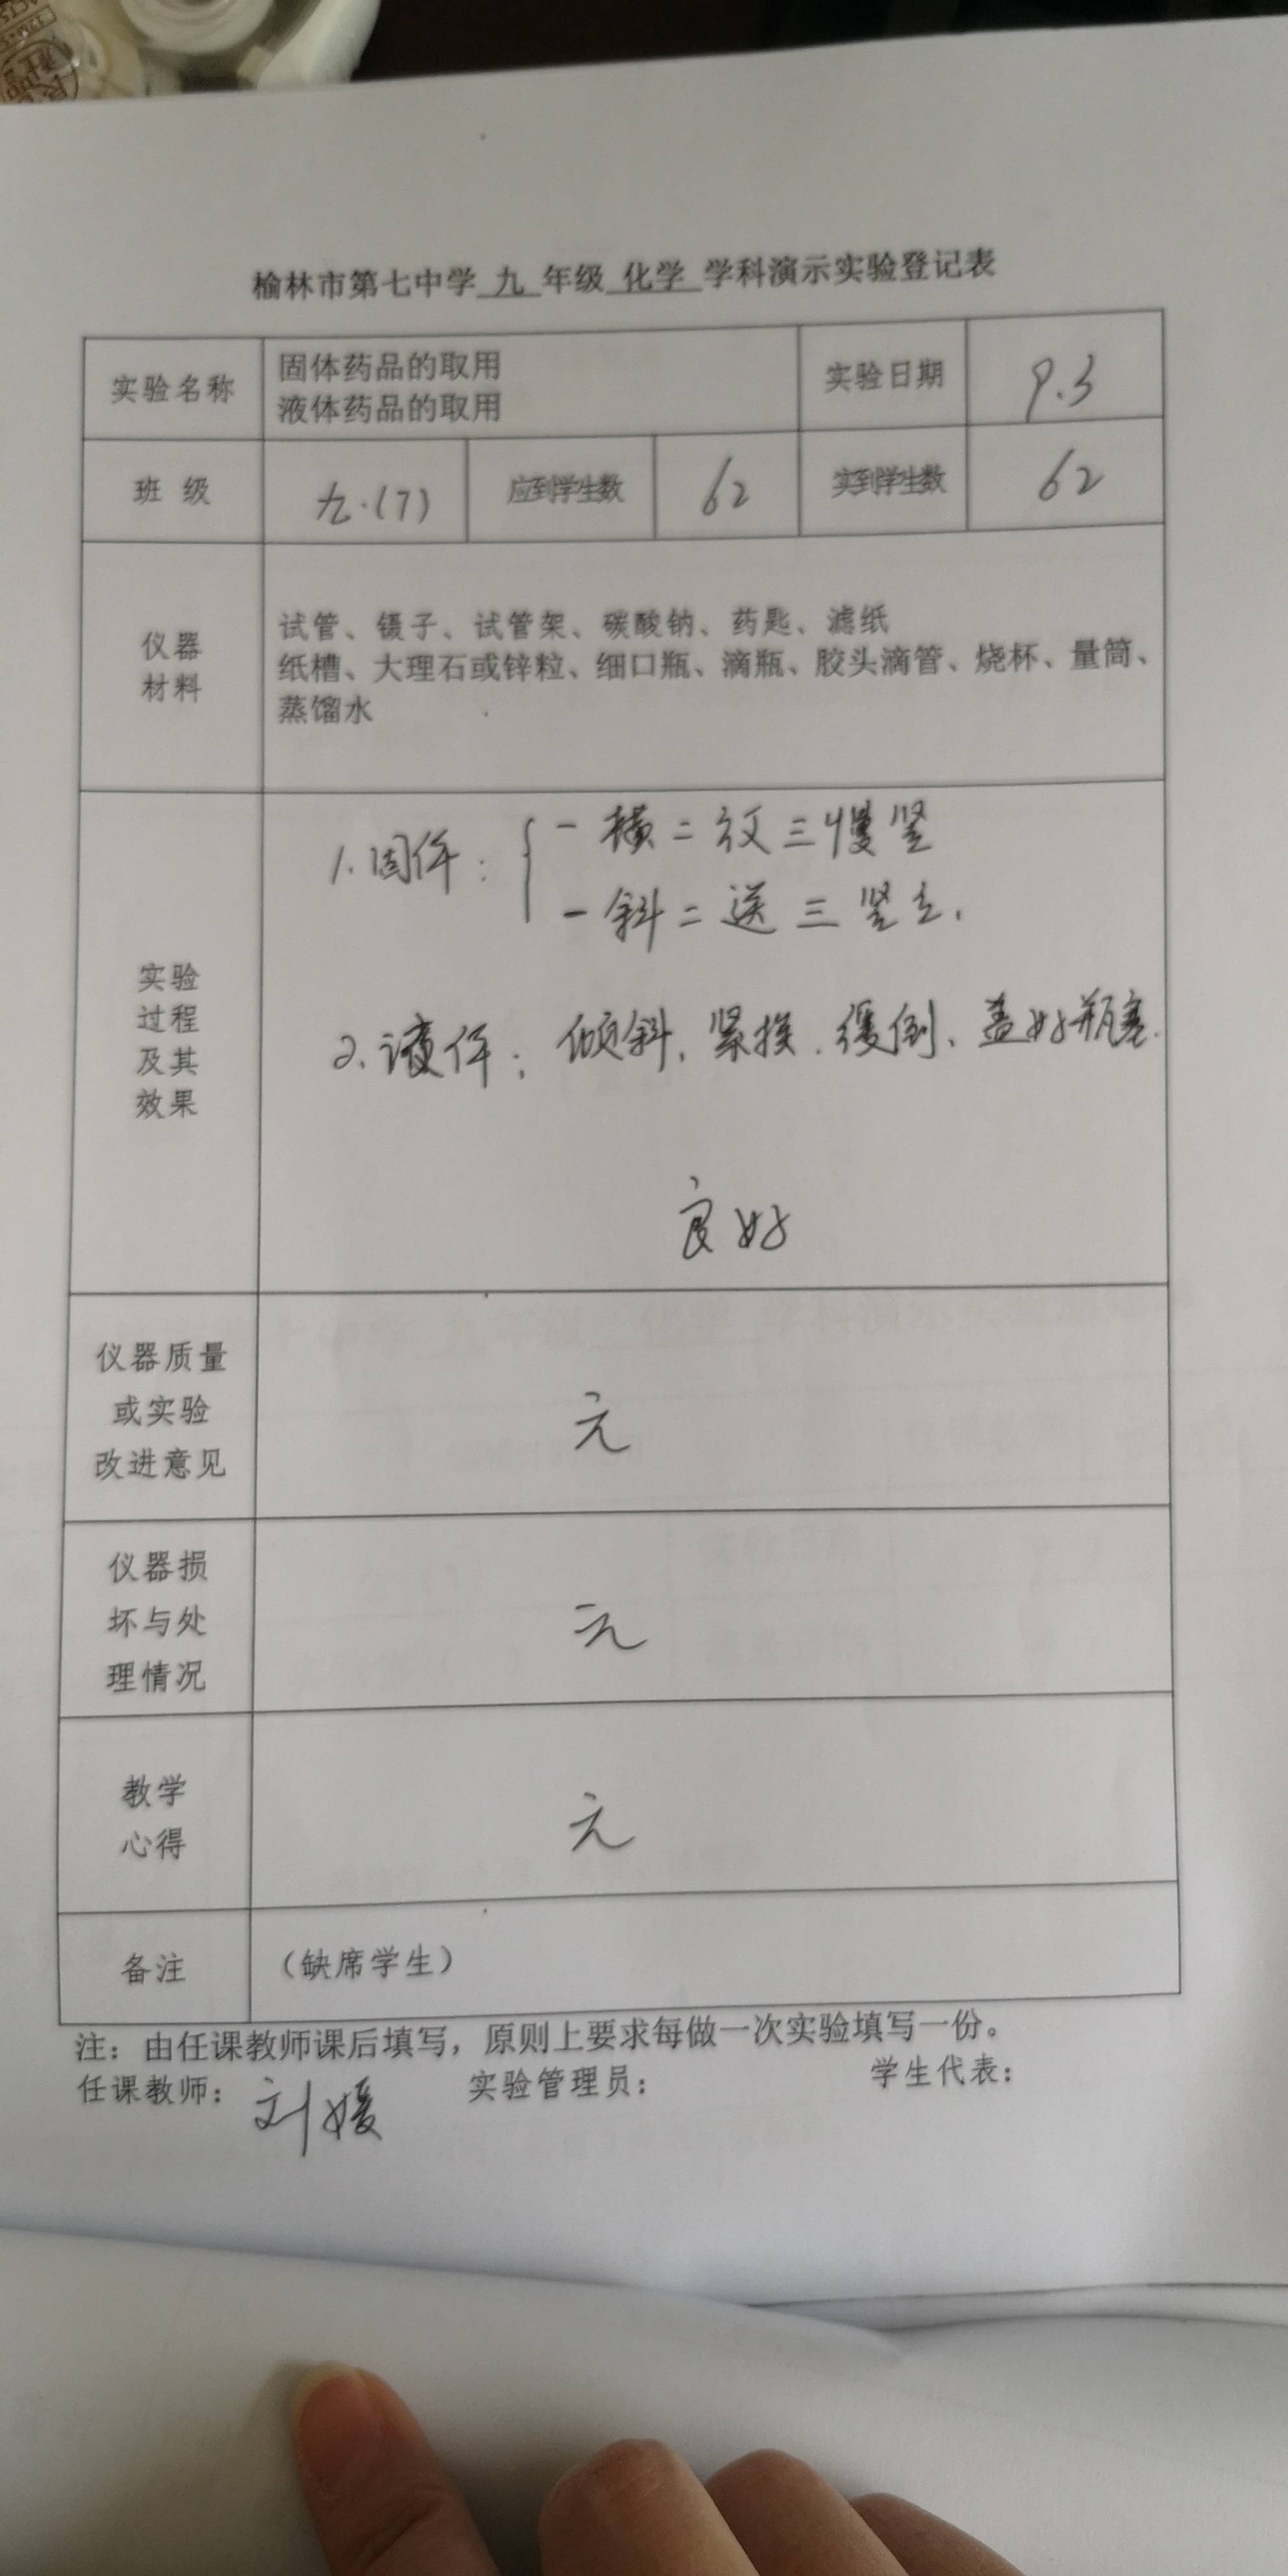 榆林市第七中学 九 年级 化学 学科演示实验登记表
实验名称
固体药品的取用
液体药品的取用
实验日期
9.3
班 级
九.(7)
应到学生数
62
实到学生数
62
仪器
材料
试管、镊子、试管架、碳酸钠、药匙、滤纸
纸槽、大理石或锌粒、细口瓶、滴瓶、胶头滴管、烧杯、量筒、
蒸馏水
实验
过程
及其
效果
1.固体: 一横二放三慢竖
一斜二送三竖立.
2.液体: 倾斜、紧挨、缓倒、盖好瓶塞.
良好
仪器质量
或实验
改进意见
无
仪器损
坏与处
理情况
无
教学
心得
无
备注
(缺席学生)
注：由任课教师课后填写，原则上要求每做一次实验填写一份。
任课教师：刘媛 实验管理员： 学生代表：